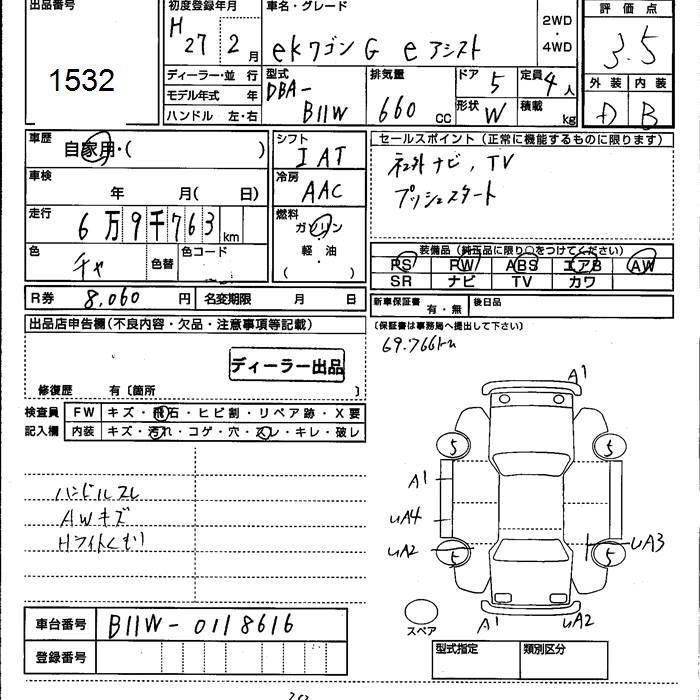 出品番号
1532
初度登録年月
H 27 2 月
車名・グレード
ekワゴン G e アシスト
2WD
・
4WD
評価点
3.5
外装 内装
D B
ディーラー・並行
モデル年式 年
ハンドル 左・右
型式
DBA-
B11W
排気量
660 cc
ドア 5
形状 W
定員 4人
積載 kg
車歴 自家用・( )
車検 年 月( 日)
走行 6万9千763 km
色 チャ 色替 色コード
シフト
IAT
冷房
AAC
燃料
ガソリン
・
軽油
( )
セールスポイント(正常に機能するものに限ります)
社外ナビ, TV
プッシュスタート
装備品(純正品に限り○をつけてください)
PS PW ABS エアB AW
SR ナビ TV カワ
R券 8,060 円 名変期限 月 日
新車保証書 有・無 後日品
(保証書は事務局へ提出して下さい)
69.766km
出品店申告欄(不良内容・欠品・注意事項等記載)
ディーラー出品
修復歴 有〔箇所 〕
検査員 FW キズ・飛石・ヒビ割・リペア跡・X要
記入欄 内装 キズ・汚れ・コゲ・穴・スレ・キレ・破レ
ハンドルスレ
AWキズ
Hライトくもり
A1
5 5
A1
UA4
UA2 UA3
5 5
A1 UA2
スペア
車台番号 B11W-0118616
登録番号
型式指定 類別区分